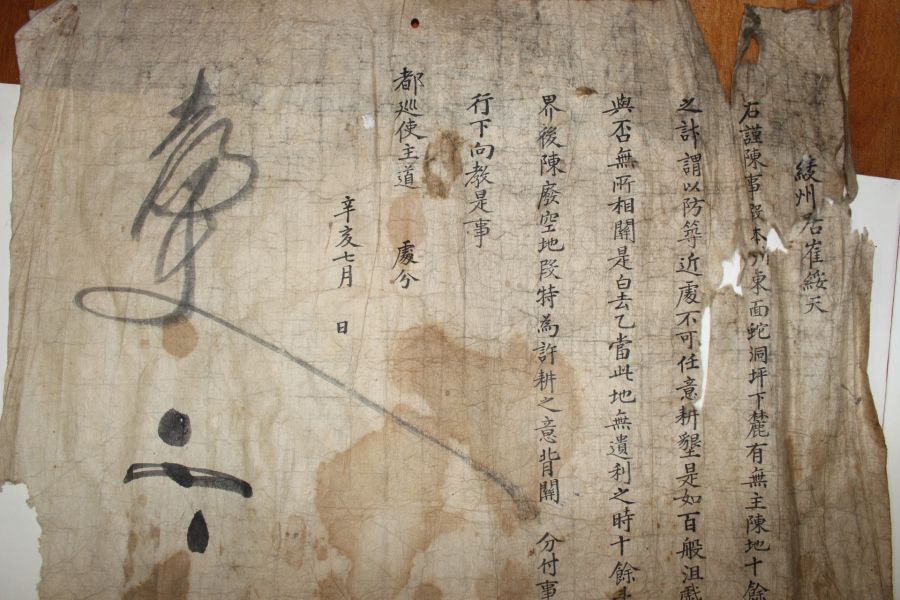 綾州居崔綏天
右謹陳事段本州東面蛇洞坪下麓有無主陳地十餘
之計謂以防築近處不可任意耕墾是如百般沮戱
與否無所相關是白去乙當此地無遺利之時十餘
界後陳廢空地段特為許耕之意背關 分付事
行下向教是事
都巡使主道 處分
辛亥七月 日